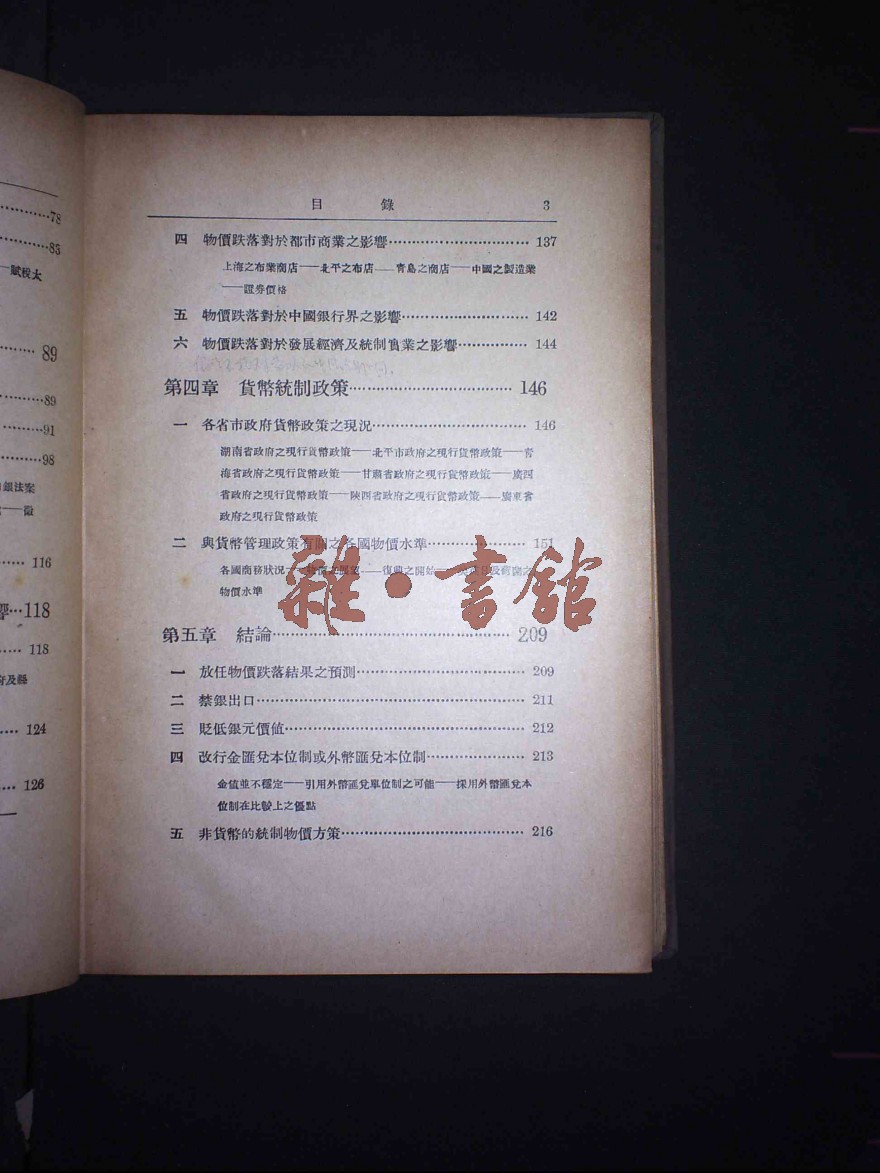 78
83
賦稅太
89
89
91
98
銀法案
徵
116
響…118
118
府及縣
124
126
目錄 3
四 物價跌落對於都市商業之影響…………137
上海之布業商店——北平之布店——青島之商店——中國之製造業
——證券價格
五 物價跌落對於中國銀行界之影響…………142
六 物價跌落對於發展經濟及統制實業之影響…………144
第四章 貨幣統制政策…………146
一 各省市政府貨幣政策之現況…………146
湖南省政府之現行貨幣政策——北平市政府之現行貨幣政策——青
海省政府之現行貨幣政策——甘肅省政府之現行貨幣政策——廣西
省政府之現行貨幣政策——陝西省政府之現行貨幣政策——廣東省
政府之現行貨幣政策
二 與貨幣管理政策有關之各國物價水準…………151
各國商務狀況——復興之開始——及舊國之
物價水準
雜·書館
第五章 結論…………209
一 放任物價跌落結果之預測…………209
二 禁銀出口…………211
三 貶低銀元價值…………212
四 改行金匯兌本位制或外幣匯兌本位制…………213
金值並不穩定——引用外幣匯兌單位制之可能——採用外幣匯兌本
位制在比較上之優點
五 非貨幣的統制物價方策…………216